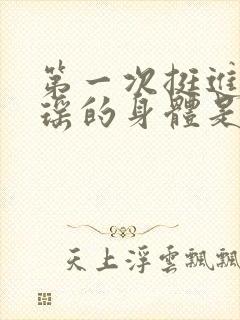 第一次挺進
瑶的身體是
天上浮雲飄飄